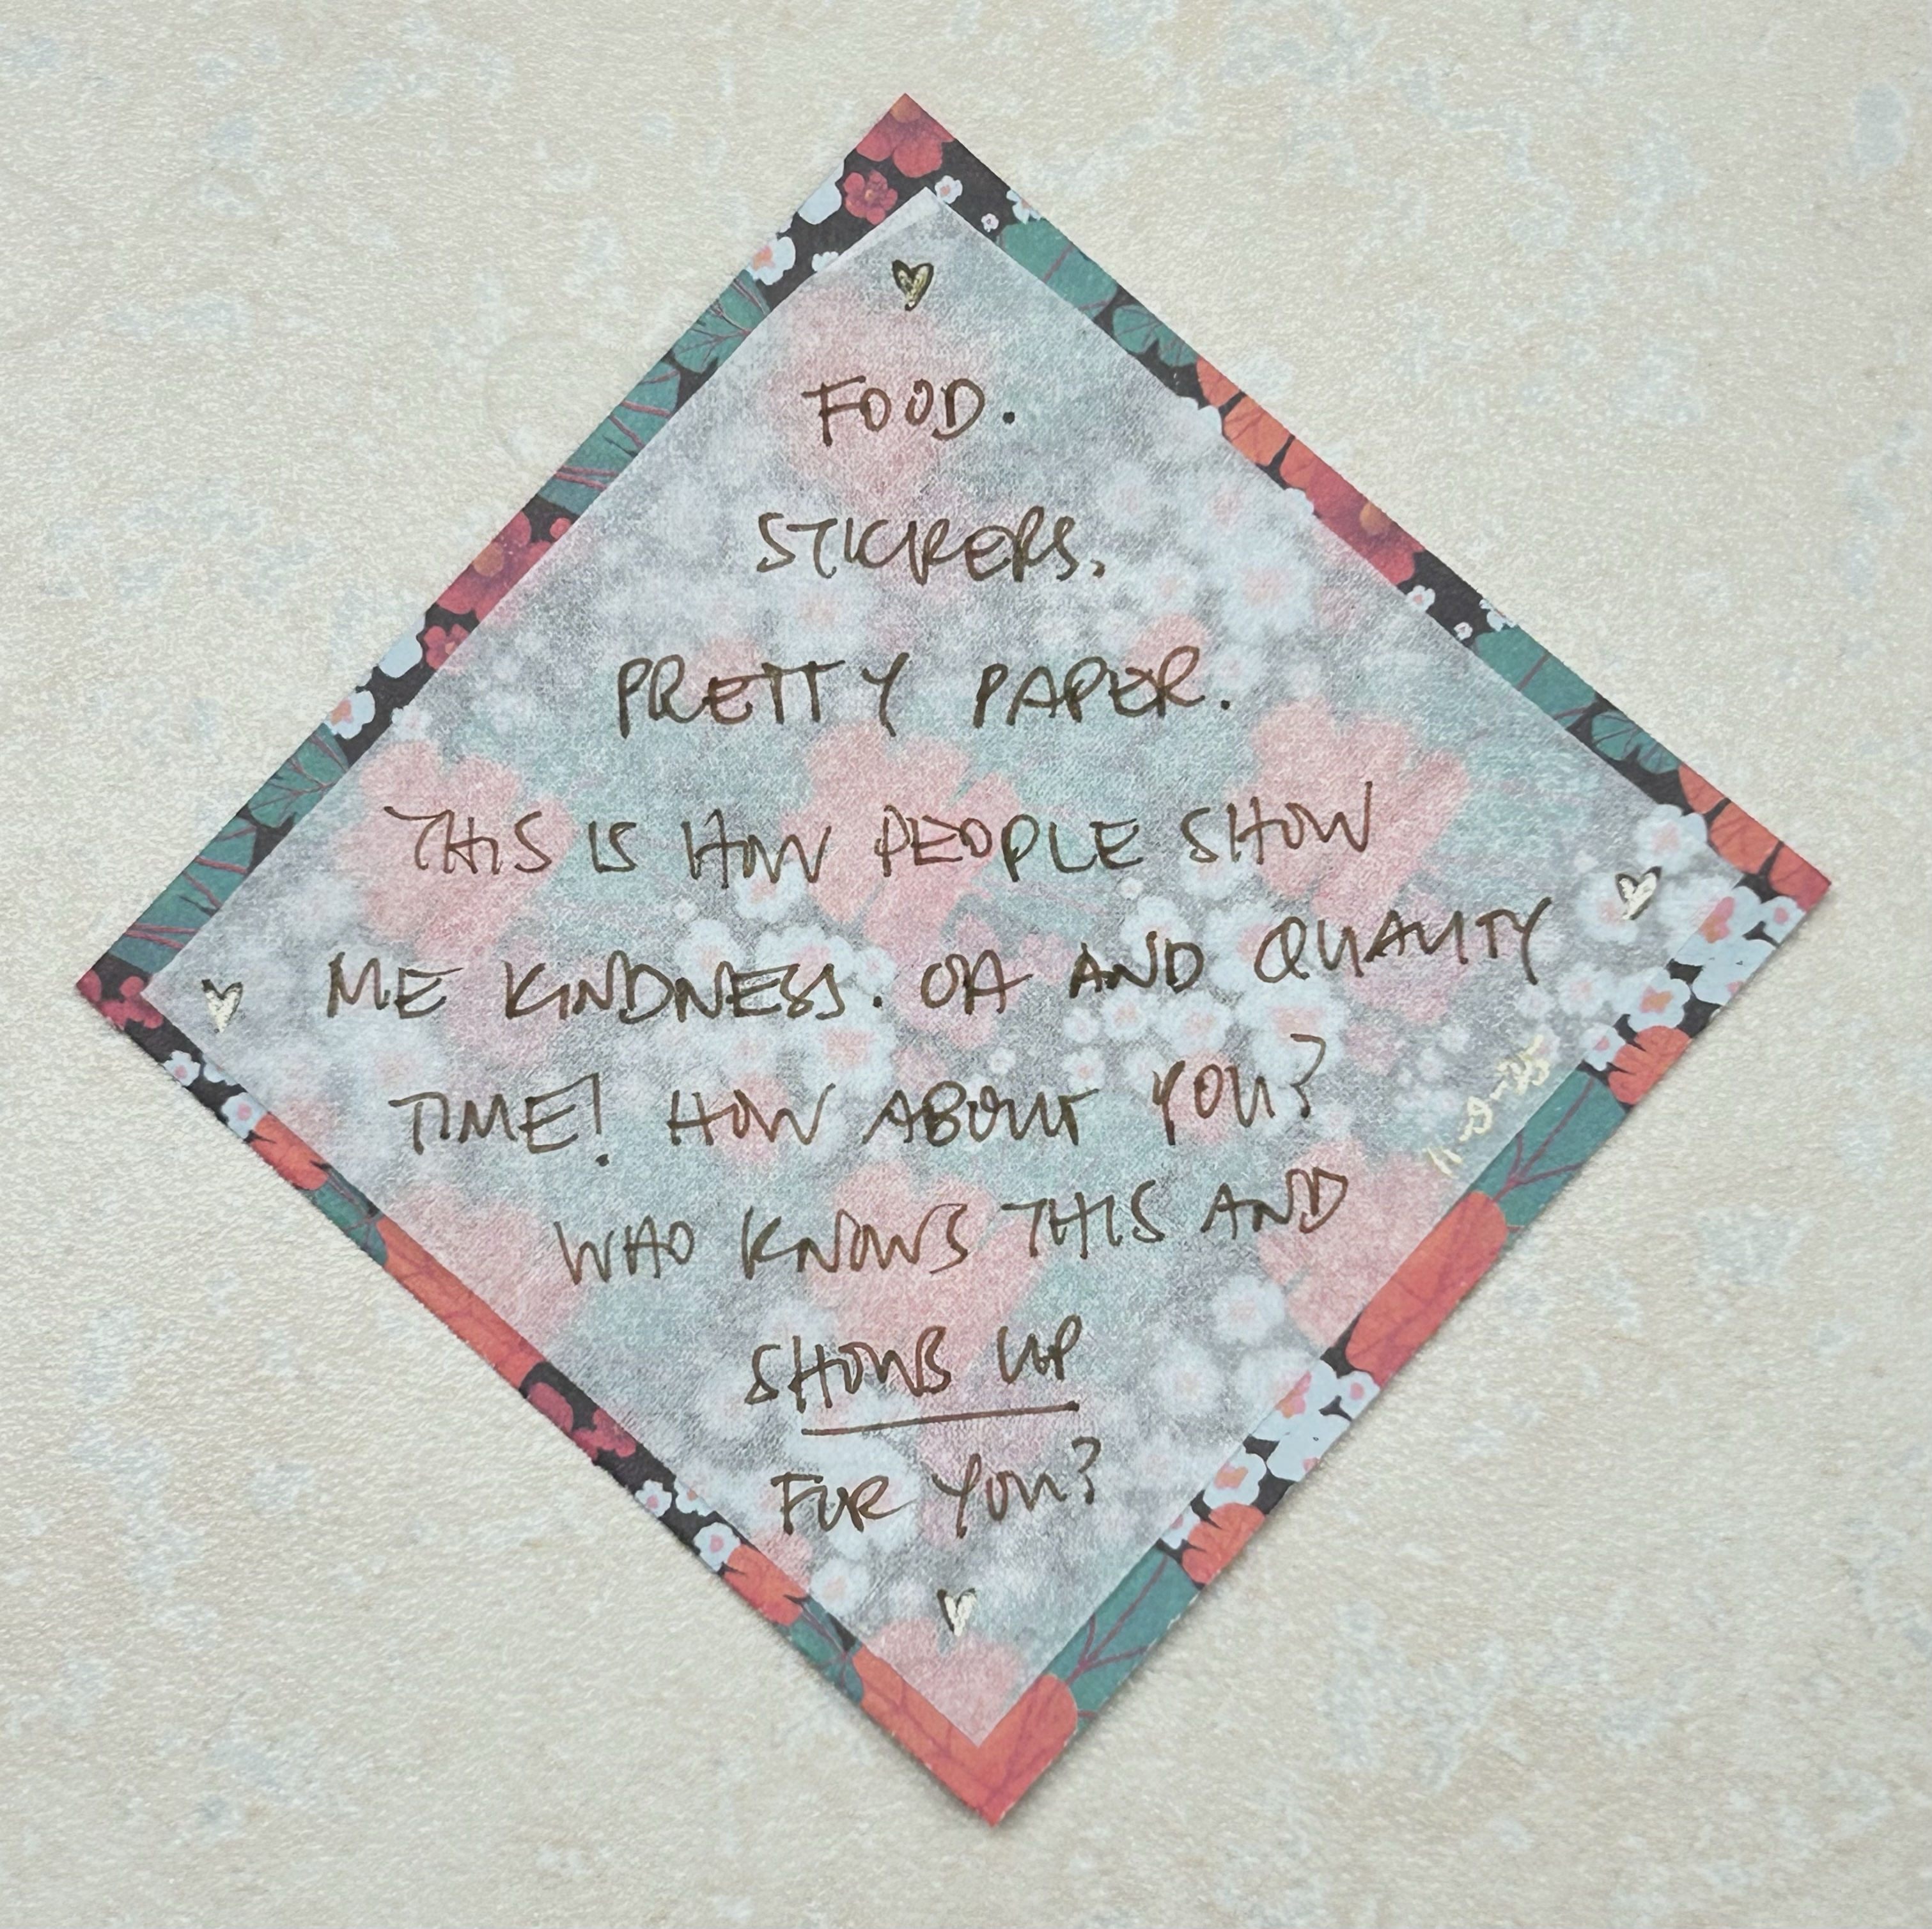 FOOD.
STICKERS.
PRETTY PAPER.
THIS IS HOW PEOPLE SHOW
ME KINDNESS. OH AND QUALITY
TIME! HOW ABOUT YOU?
WHO KNOWS THIS AND
SHOWS UP
FOR YOU?
11-2-25